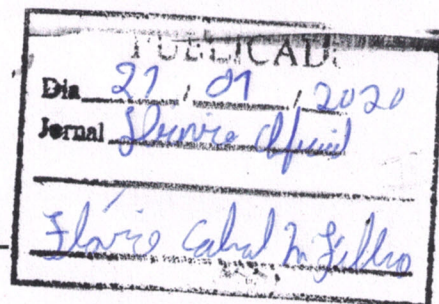 PUBLICAD
Dia 27 / 01 / 2020
Jornal Diário Oficial
Flávio Cabral M Filho